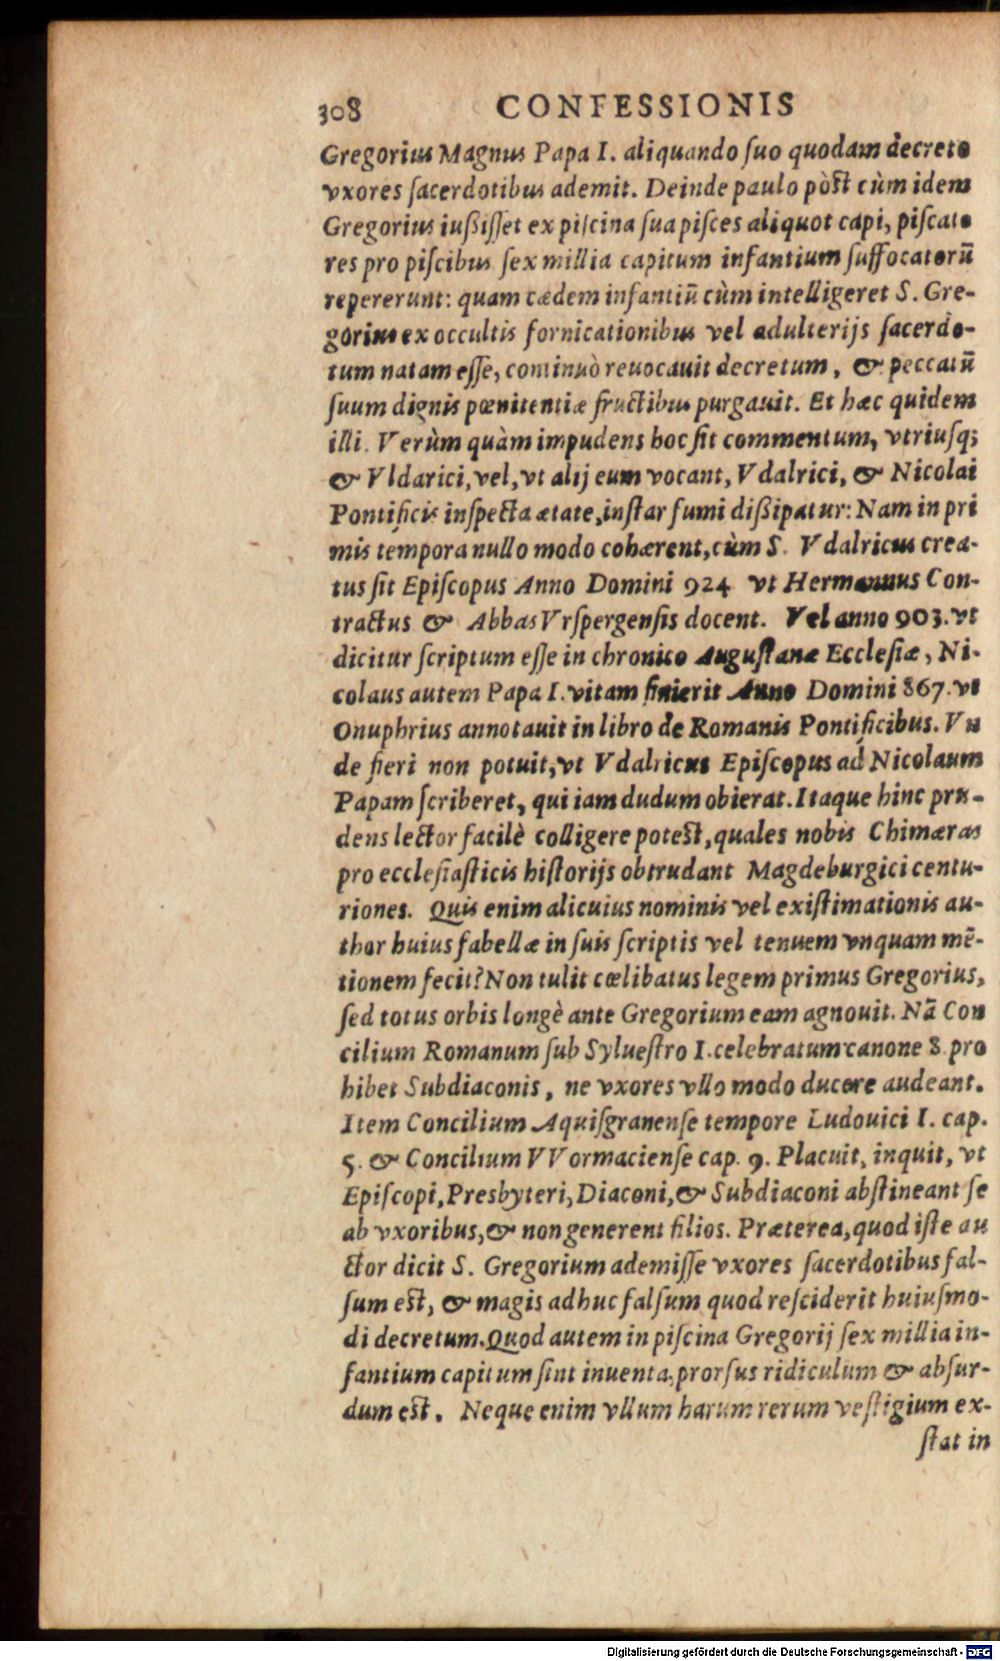 308 CONFESSIONIS
Gregorius Magnus Papa I. aliquando ſuo quodam decreto
vxores ſacerdotibus ademit. Deinde paulo pòſt cùm idem
Gregorius iuſſiſſet ex piſcina ſua piſces aliquot capi, piſcato
res pro piſcibus ſex millia capitum infantium ſuffocatorū
repererunt: quam cædem infantiū cùm intelligeret S. Gre-
gorius ex occultis fornicationibus vel adulterijs ſacerdo-
tum natam eſſe, continuò reuocauit decretum, & peccatū
ſuum dignis pœnitentiæ fructibus purgauit. Et hæc quidem
illi. Verùm quàm impudens hoc ſit commentum, vtriuſq;
& Vldarici, vel, vt alij eum vocant, Vdalrici, & Nicolai
Pontificis inſpecta ætate, inſtar fumi diſſipatur: Nam in pri
mis tempora nullo modo cohærent, cùm S. Vdalricus crea-
tus ſit Epiſcopus Anno Domini 924 vt Hermannus Con-
tractus & Abbas Vrſpergenſis docent. Vel anno 903. vt
dicitur ſcriptum eſſe in chronico Auguſtanæ Eccleſiæ, Ni-
colaus autem Papa I. vitam finierit Anno Domini 867. vt
Onuphrius annotauit in libro de Romanis Pontificibus. Vn
de fieri non potuit, vt Vdalricus Epiſcopus ad Nicolaum
Papam ſcriberet, qui iam dudum obierat. Itaque hinc pru-
dens lector facilè colligere poteſt, quales nobis Chimæras
pro eccleſiaſticis hiſtorijs obtrudant Magdeburgici centu-
riones. Quis enim alicuius nominis vel exiſtimationis au-
thor huius fabellæ in ſuis ſcriptis vel tenuem vnquam mē-
tionem fecit? Non tulit cœlibatus legem primus Gregorius,
ſed totus orbis longè ante Gregorium eam agnouit. Nã Con
cilium Romanum ſub Sylueſtro I. celebratum canone 8. pro
hibet Subdiaconis, ne vxores vllo modo ducere audeant.
Item Concilium Aquiſgranenſe tempore Ludouici I. cap.
5. & Concilium VVormacienſe cap. 9. Placuit, inquit, vt
Epiſcopi, Presbyteri, Diaconi, & Subdiaconi abſtineant ſe
ab vxoribus, & non generent filios. Præterea, quod iſte au
ctor dicit S. Gregorium ademiſſe vxores ſacerdotibus fal-
ſum eſt, & magis adhuc falſum quod reſciderit huiuſmo-
di decretum. Quod autem in piſcina Gregorij ſex millia in-
fantium capitum ſint inuenta, prorſus ridiculum & abſur-
dum eſt. Neque enim vllum harum rerum veſtigium ex-
ſtat in
Digitalisierung gefördert durch die Deutsche Forschungsgemeinschaft - DFG